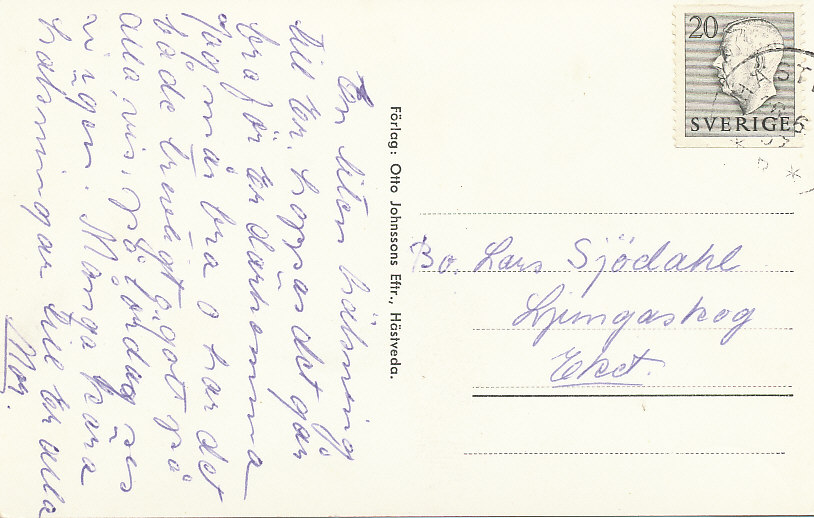 En liten hälsning
till Er. hoppas det går
bra för Er därhemma
Jag mår bra o har det
både trevligt o gott på
alla vis, på lördag ses
vi igen. Många kära
hälsningar till Er alla
Mor.
Förlag: Otto Johnssons Eftr., Hästveda.
20
SVERIGE
Bo. Lars Sjödahl
Ljungaskog
Eket.